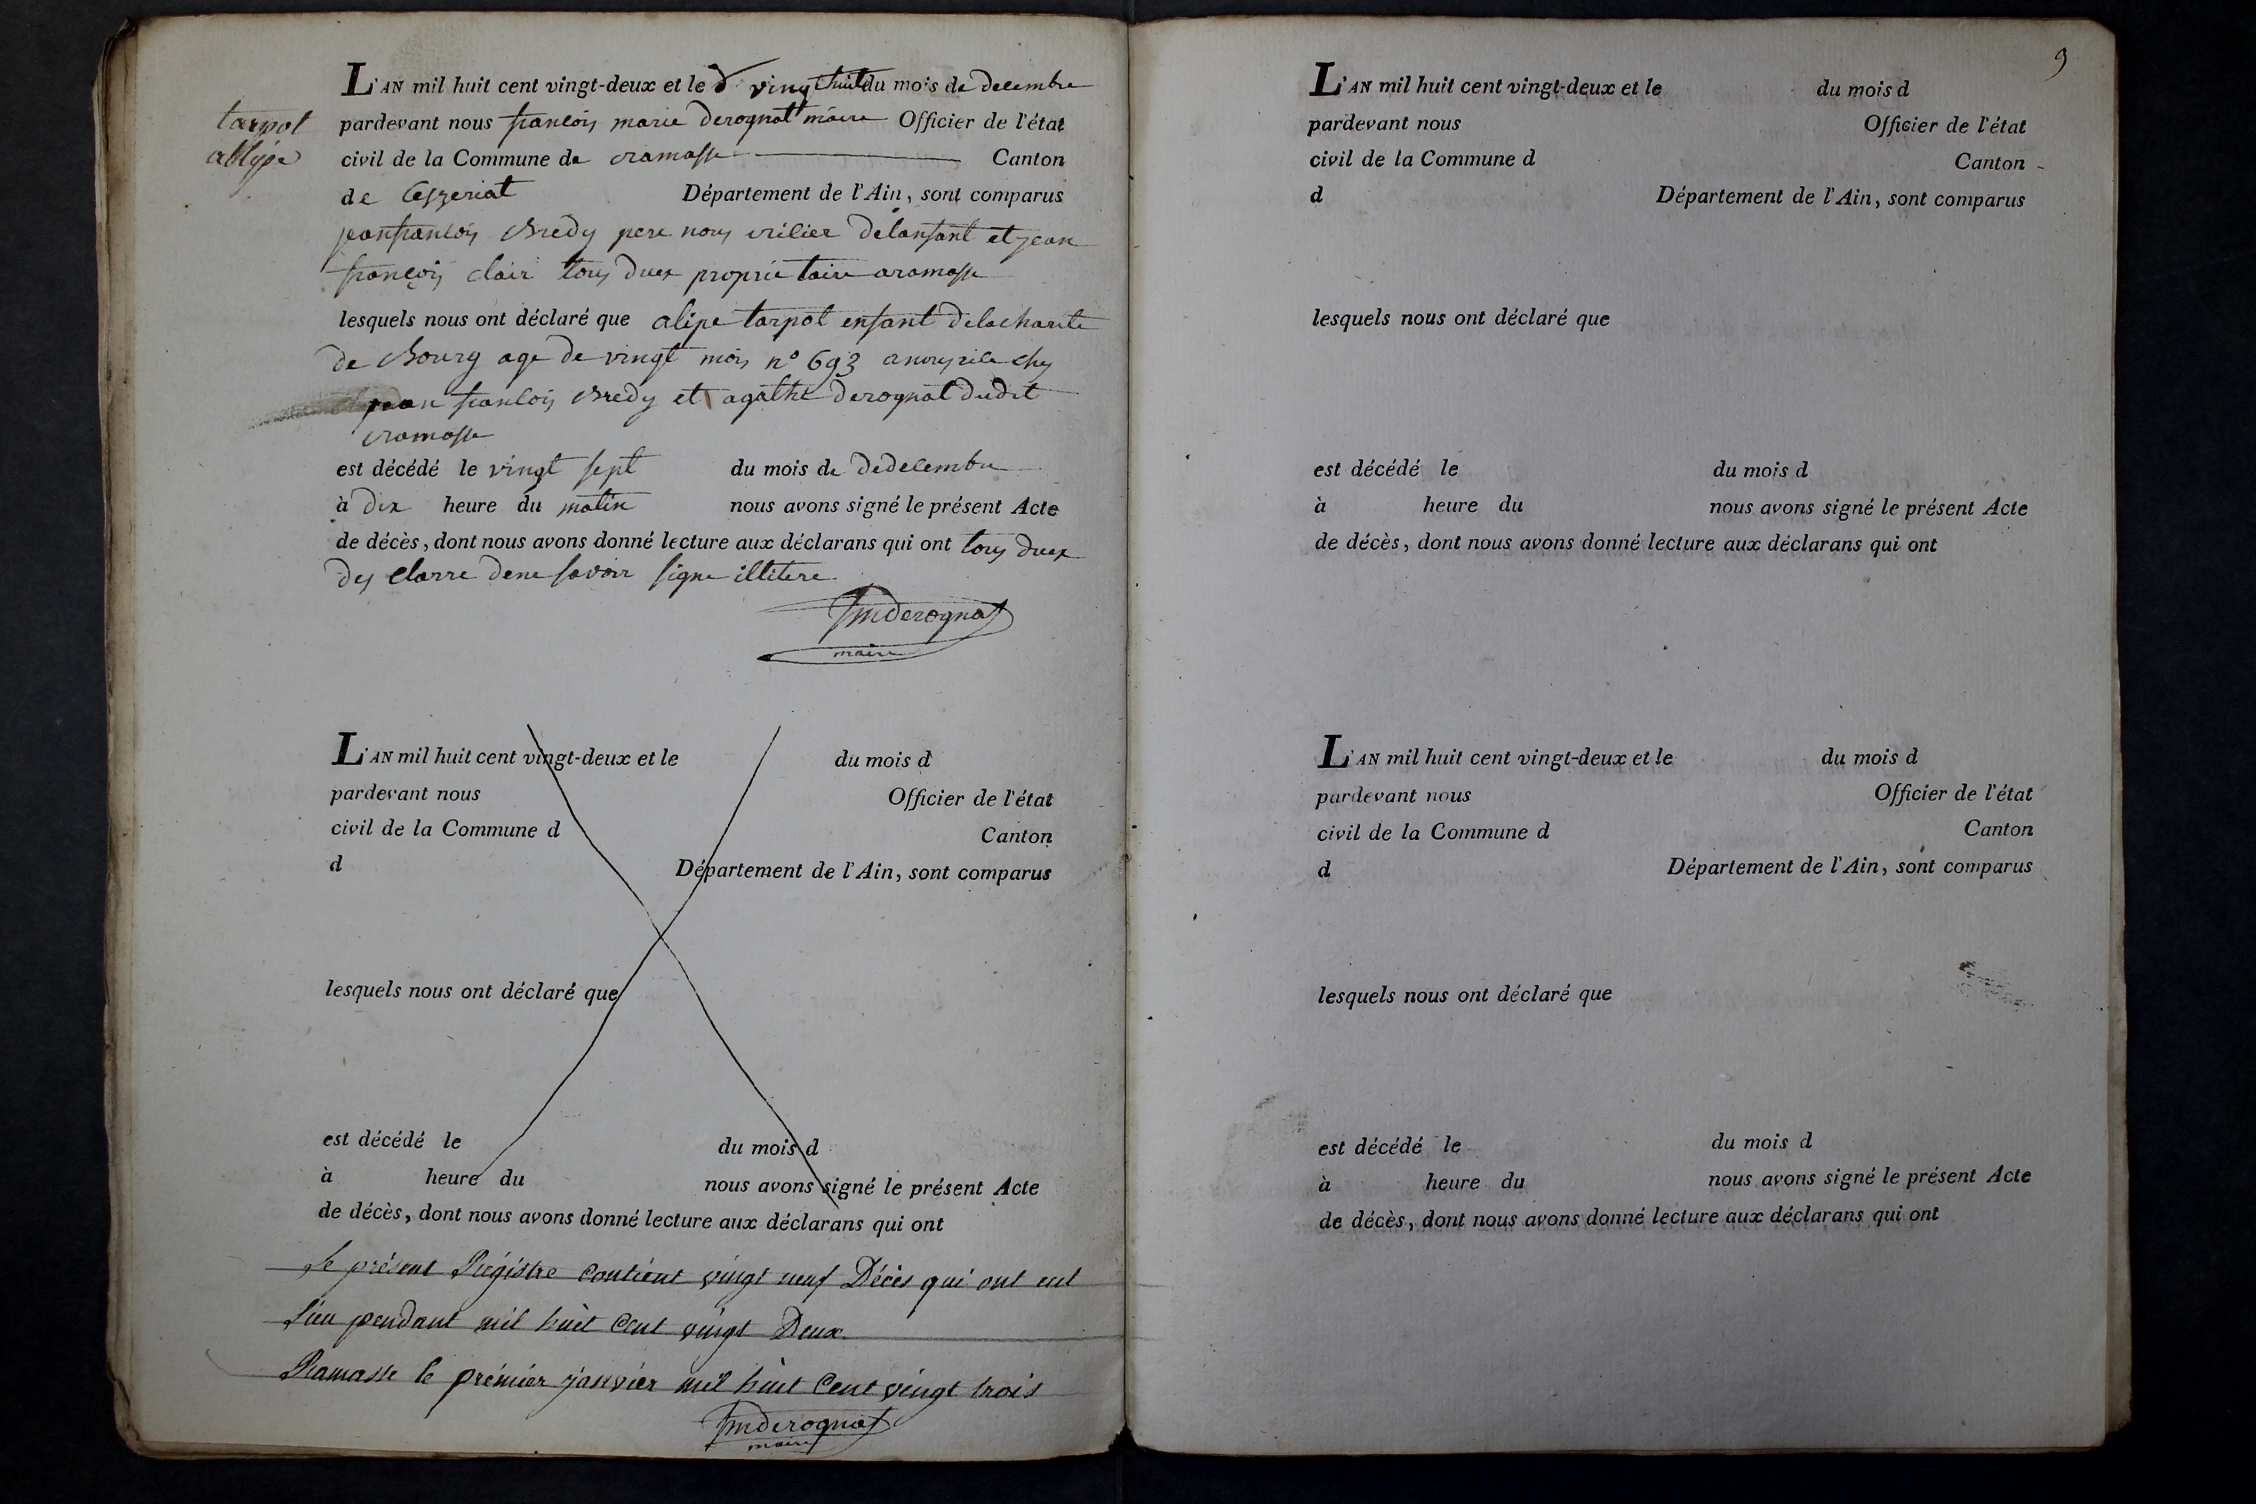 tarpot
allipe
L'AN mil huit cent vingt-deux et le vingt huit du mois de decembre
pardevant nous francois marie derognat maire Officier de l'état
civil de la Commune de ramasse Canton
de Ceyzeriat Département de l'Ain, sont comparus
jeanfrancois Bredy pere nouricier delanfant et jean
françois clair tous duex proprietaire aramasse
lesquels nous ont déclaré que alipe tarpot enfant delacharite
de Bourg age de vingt mois n° 693 chez
jean francois Bredy et agathe derognat dudit
ramasse
est décédé le vingt sept du mois de dedecembre
à dix heure du matin nous avons signé le présent Acte
de décès, dont nous avons donné lecture aux déclarans qui ont tous duex
des clarre dene savoir signe illitere
fmderognat
maire
L'AN mil huit cent vingt-deux et le du mois d
pardevant nous Officier de l'état
civil de la Commune d Canton
d Département de l'Ain, sont comparus
lesquels nous ont déclaré que
est décédé le du mois d
à heure du nous avons signé le présent Acte
de décès, dont nous avons donné lecture aux déclarans qui ont
Le présent Régistre contient vingt neuf Décès qui ont eut
lieu pendant mil huit Cent vingt Deux
Ramasse le prémiér janviér mil huit Cent vingt trois
fmderognat
maire
9
L'AN mil huit cent vingt-deux et le du mois d
pardevant nous Officier de l'état
civil de la Commune d Canton
d Département de l'Ain, sont comparus
lesquels nous ont déclaré que
est décédé le du mois d
à heure du nous avons signé le présent Acte
de décès, dont nous avons donné lecture aux déclarans qui ont
L'AN mil huit cent vingt-deux et le du mois d
pardevant nous Officier de l'état
civil de la Commune d Canton
d Département de l'Ain, sont comparus
lesquels nous ont déclaré que
est décédé le du mois d
à heure du nous avons signé le présent Acte
de décès, dont nous avons donné lecture aux déclarans qui ont